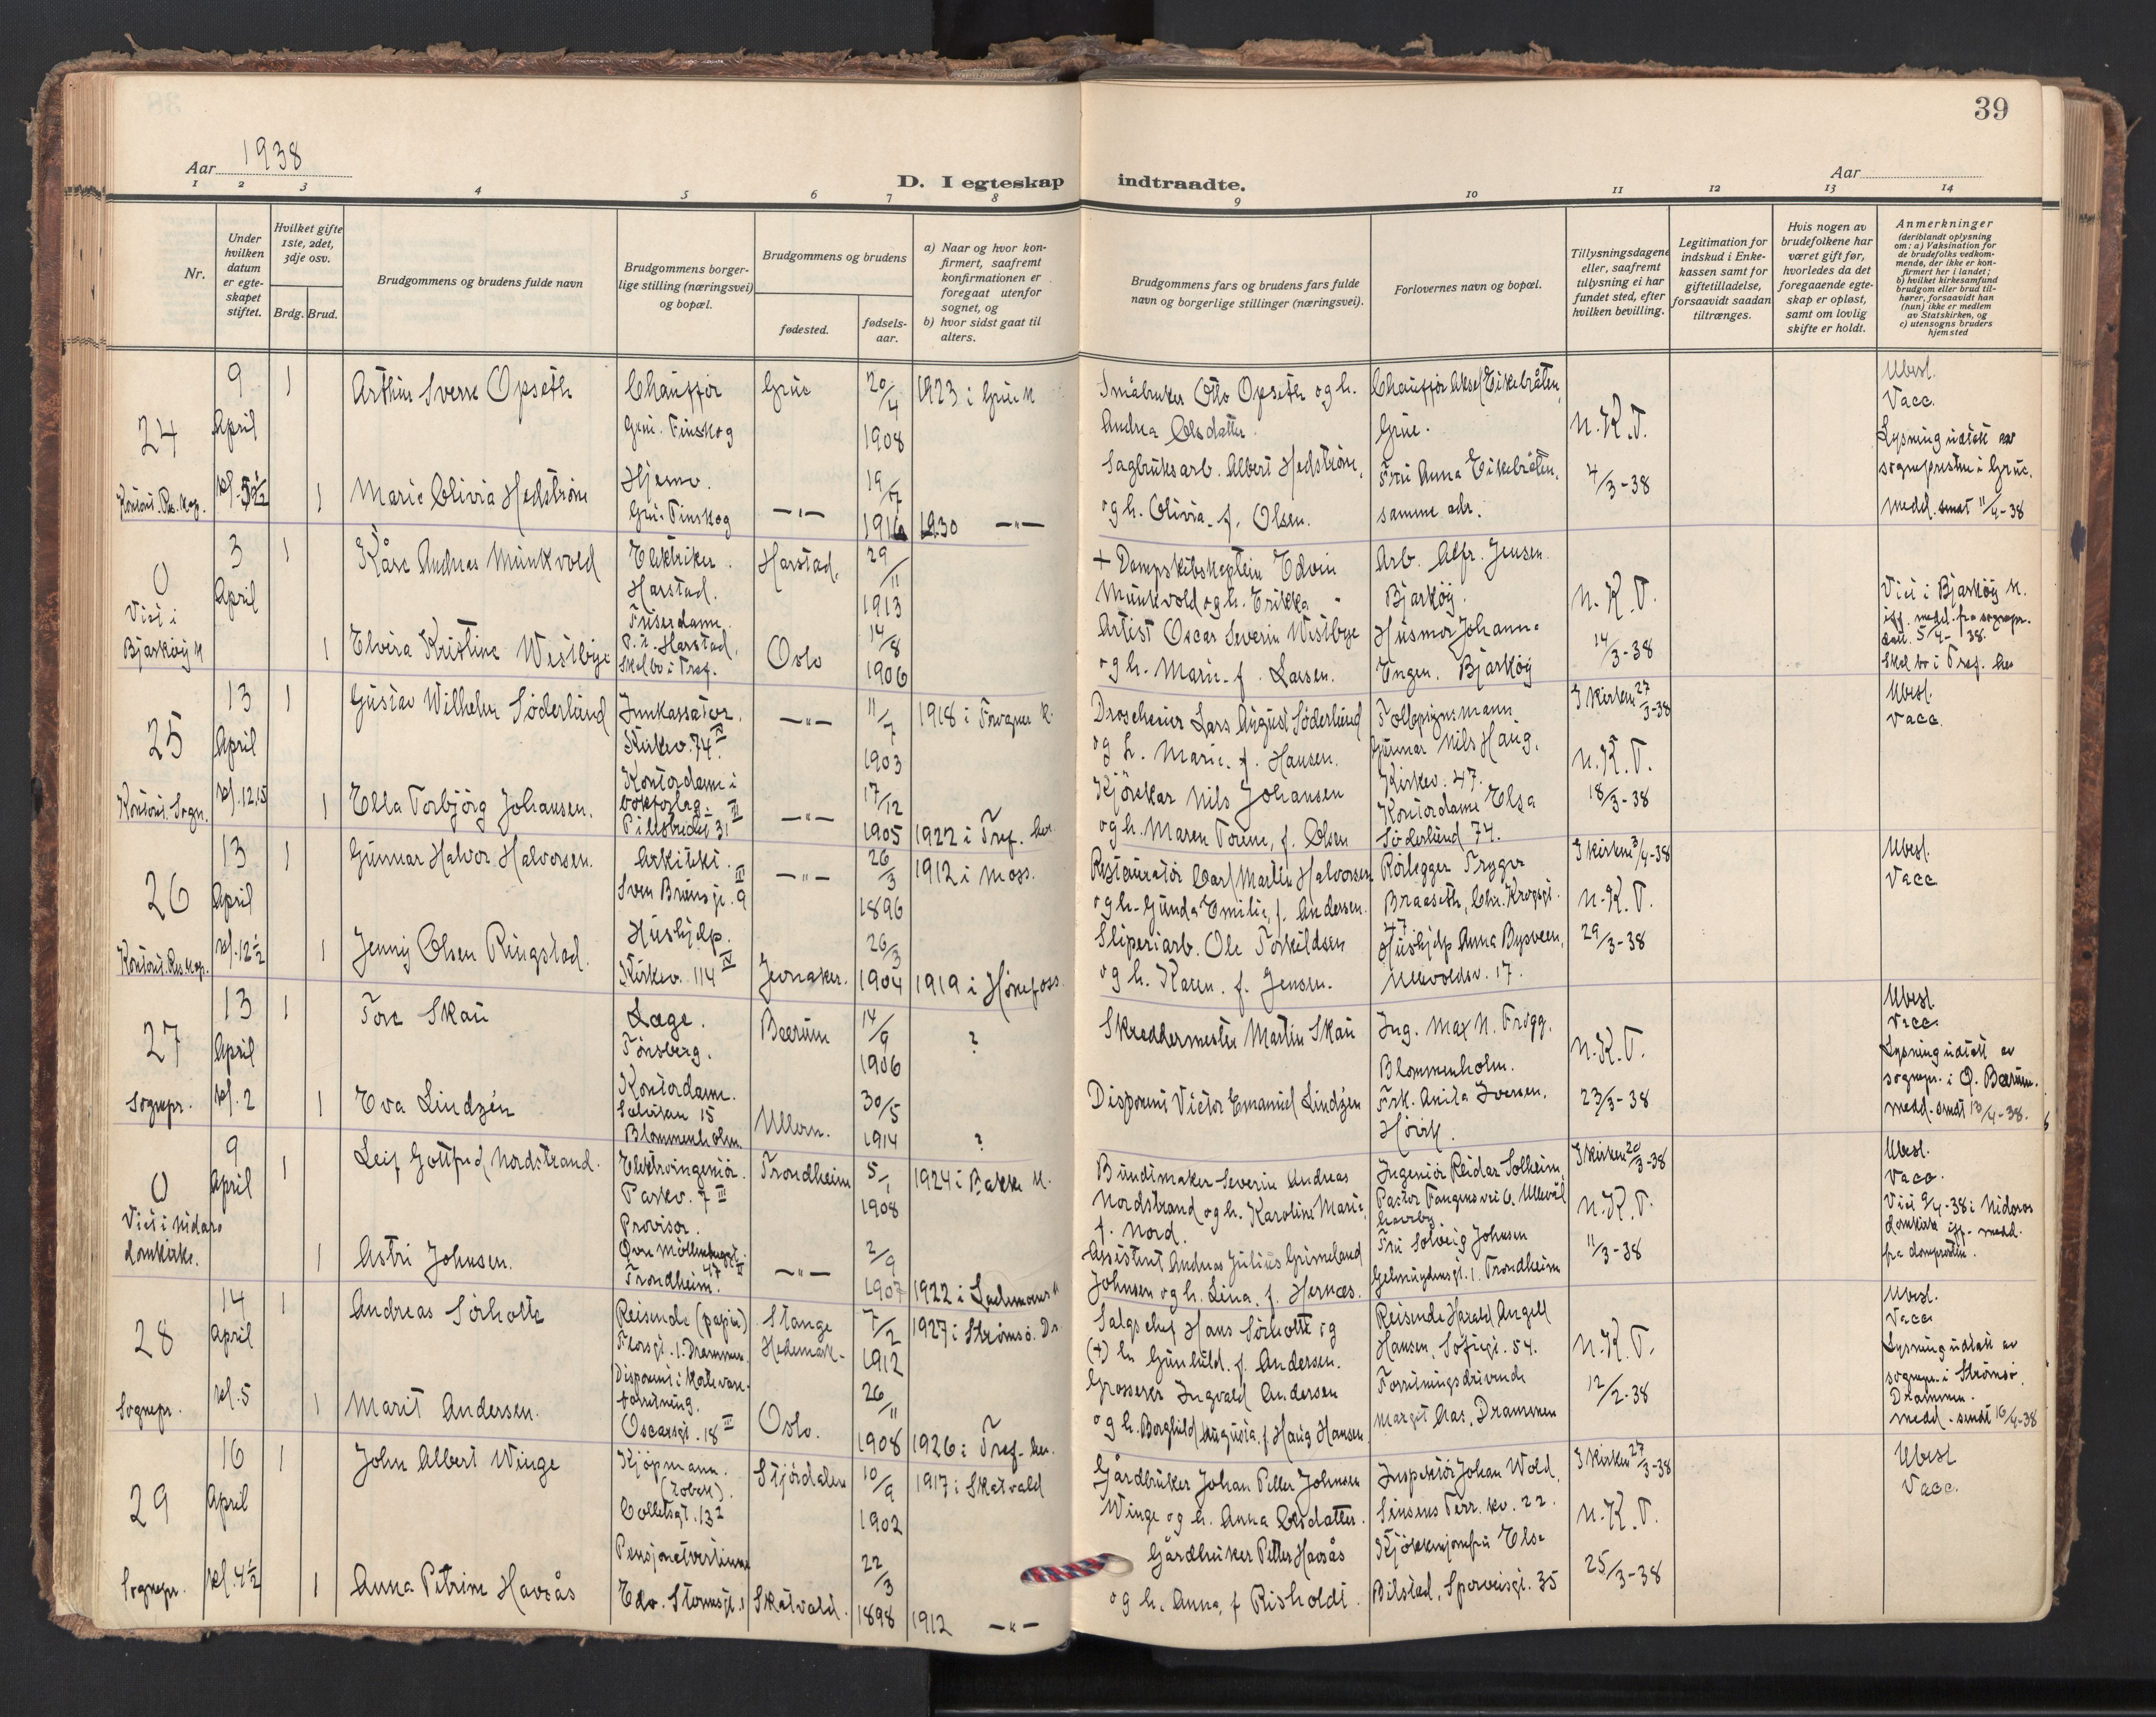 39
Aar 1938
D. I egteskap indtraadte.
Aar
1 2 3 4 5 6 7 8 9 10 11 12 13 14
Nr.
Under hvilken datum er egteskapet stiftet.
Hvilket gifte 1ste, 2det, 3dje osv.
Brdg. Brud.
Brudgommens og brudens fulde navn
Brudgommens borgerlige stilling (næringsvei) og bopæl.
Brudgommens og brudens
fødested.
fødselsaar.
a) Naar og hvor konfirmert, saafremt konfirmationen er foregaat utenfor sognet, og
b) hvor sidst gaat til alters.
Brudgommens fars og brudens fars fulde navn og borgerlige stillinger (næringsvei).
Forlovernes navn og bopæl.
Tillysningsdagene eller, saafremt tillysning ei har fundet sted, efter hvilken bevilling.
Legitimation for indskud i Enkekassen samt for giftetilladelse, forsaavidt saadan tiltrænges.
Hvis nogen av brudefolkene har været gift før, hvorledes da det foregaaende egteskap er opløst, samt om lovlig skifte er holdt.
Anmerkninger
(deriblandt oplysning om: a) Vaksination for de brudefolks vedkommende, der ikke er konfirmert her i landet; b) hvilket kirkesamfund brudgom eller brud tilhører, forsaavidt han (hun) ikke er medlem av Statskirken, og c) utensogns bruders hjemsted
24
Kontoret. Res. kap.
9 April kl. 5½
1
Arthur Sverre Opseth
Chauffør
Grue Finskog
Grue
20/4 1908
1923 i Grue K
Småbruker Otto Opseth og h.
Andrea Olsdatter.
Chauffør Aksel Eikebråten,
Grue.
N.K.T.
4/3-38
Ubesl.
Vacc.
Lysning utstedt av
sognepresten i Grue.
medd. sendt 11/4-38
1
Marie Olivia Hedstrøm
Hjemv.
Grue Finskog
—"—
19/7 1916
1930 —"—
Sagbruksarb. Albert Hedstrøm,
og h. Olivia f. Olsen.
Fru Anna Eikebråten,
samme adr.
0
Viet i
Bjarkøy K
3 April
1
Kåre Andreas Munkvold
Elektriker.
Harstad.
Harstad.
29/11 1913
+ Dampskibskaptein Edvin
Munkvold og h. Erikka
Arb. Alfr. Jensen
Bjarkøy.
N.K.T.
14/3-38
Viet i Bjarkøy K.
iflg. medd. fra sognepr.
dat. 5/4-38.
Skal bo i Tref. her
1
Elvira Kristine Westbye
Friserdame.
P.t. Harstad.
Skal bo i Tref.
Oslo
14/8 1906
Artist Oscar Severin Westbye
og h. Marie f. Larsen.
Husmor Johanne
Engen. Bjarkøy
25
Kontoret. Sogn.
13 April kl. 12.15
1
Gustav Wilhelm Söderlund
Innkassator.
Kirkev. 74 IV
—"—
11/7 1903
1918 i Frogner K.
Droscheeier Lars August Söderlund
og h. Marie f. Hansen.
Tollopsynsmann
Gunnar Nils Haug,
Kirkev. 47.
I kirken 27/3-38
N.K.T.
18/3-38
Ubesl.
Vacc.
1
Ella Torbjörg Johansen.
Kontordame i
bokforlag.
Pilestredet 31 II
—"—
17/12 1905
1922 i Tref. her
Kjörekar Nils Johansen
og h. Maren Torine, f. Olsen
Kontordame Elsa
Söderlund 74.
26
Kontoret. Res. kap.
13 April kl. 12½
1
Gunnar Halvor Halvorsen.
Arkitekt.
Sven Brunsgt. 9 III
—"—
26/3 1896
1912 i Moss.
Restauratør Carl Martin Halvorsen
og h. Gunda Emilie, f. Andersen.
Rørlegger Trygve
Braaseth, Chr. Krogsgt.
47.
I kirken 3/4-38
N.K.T.
29/3-38
Ubesl.
Vacc
1
Jenny Olsen Ringstad.
Hushjelp.
Kirkev. 114 IV
Jevnaker.
26/3 1904
1919 i Hønefoss.
Sliperiarb. Ole Torkildsen
og h. Karen f. Jensen.
Hushjelp Anna Bysveen,
Ullevoldsv. 17.
27
Sognepr.
13 April kl. 2
1
Tore Skau
Læge.
Tönsberg.
Bærum
14/9 1906
?
Skreddermester Martin Skau
Ing. Max N. Frogg.
Blommenholm.
N.K.T.
23/3-38
Ubesl.
Vacc.
Lysning utstedt av
sognepr. i Ö. Bærum.
medd. sendt 13/4-38.
1
Eva Lindzén
Kontordame.
15
Blommenholm
Ullern.
30/5 1914
?
Disponent Victor Emanuel Lindzén
Frk. Anita Iversen.
Hövik.
0
Viet i Nidaros
domkirke.
9 April
1
Leif Gottfred Nordstrand.
Elektroingeniør.
Parkv. 7 III
Trondheim
5/1 1908
1924 i Bakke K.
Buntmaker Severin Andreas
Nordstrand og h. Karoline Marie,
f. Nord.
Ingeniør Reidar Solheim
Pastor Fangens vei 6. Ullevål
haveby.
I kirken 20/3-38
N.K.T.
11/3-38
Ubesl.
Vacc.
Viet 9/4-38 i Nidaros
domkirke iflg. medd.
fra domprosten.
1
Astri Johnsen.
Provisor.
Övre Möllenbergsgt. 47 II
Trondheim.
—"—
2/9 1907
1922 i Lademoens K
Assistent Andreas Julius Grimeland
Johnsen og h. Lina, f. Hernæs.
Fru Solveig Johnsen
1. Trondheim
28
Sognepr.
14 April kl. 5
1
Andreas Sörholte
Reisende (papir)
1. Drammen.
Stange
Hedemark.
7/2 1912
1927 i Strømsö. Dr.
Salgschef Hans Sörholte og
(+) h. Gunhild. f. Andersen.
Reisende Harald Angell
Hansen, Sofiegt. 54.
N.K.T.
12/2-38
Ubesl.
Vacc
Lysning utstedt av
sognepr. i Strömsö,
Drammen.
medd. sendt 16/4-38
1
Marit Andersen.
Disponent i
forretning.
Oscarsgt. 18 III
Oslo.
26/11 1908
1926 i Tref. her.
Grosserer Ingvald Andersen
og h. Borghild Augusta, f. Haug Hansen
Forretningsdrivende
Margit Aas, Drammen
29
Sognepr.
16 April kl. 4½
1
John Albert Winge
Kjøpmann.
(Tobak).
Colletsgt. 13 2
Stjördalen
10/9 1902
1917 i Skatvald
Gårdbruker Johan Petter Johnsen
Winge og h. Anna Olsdatter.
Inspektör Johan Wold,
Sinsens Terr. kv. 22.
I kirken 27/3-38
N.K.T.
25/3-38
Ubesl
Vacc.
1
Anna Petrine Havsås
Pensjonatvertinne
Edv. Stormsgt. 1
Skatvald.
22/3 1898
1912 —"—
Gårdbruker Petter Havsås
og h. Anna, f. Risholdt.
Kjøkkenjomfru Else
Bilstad, Sporveisgt. 35